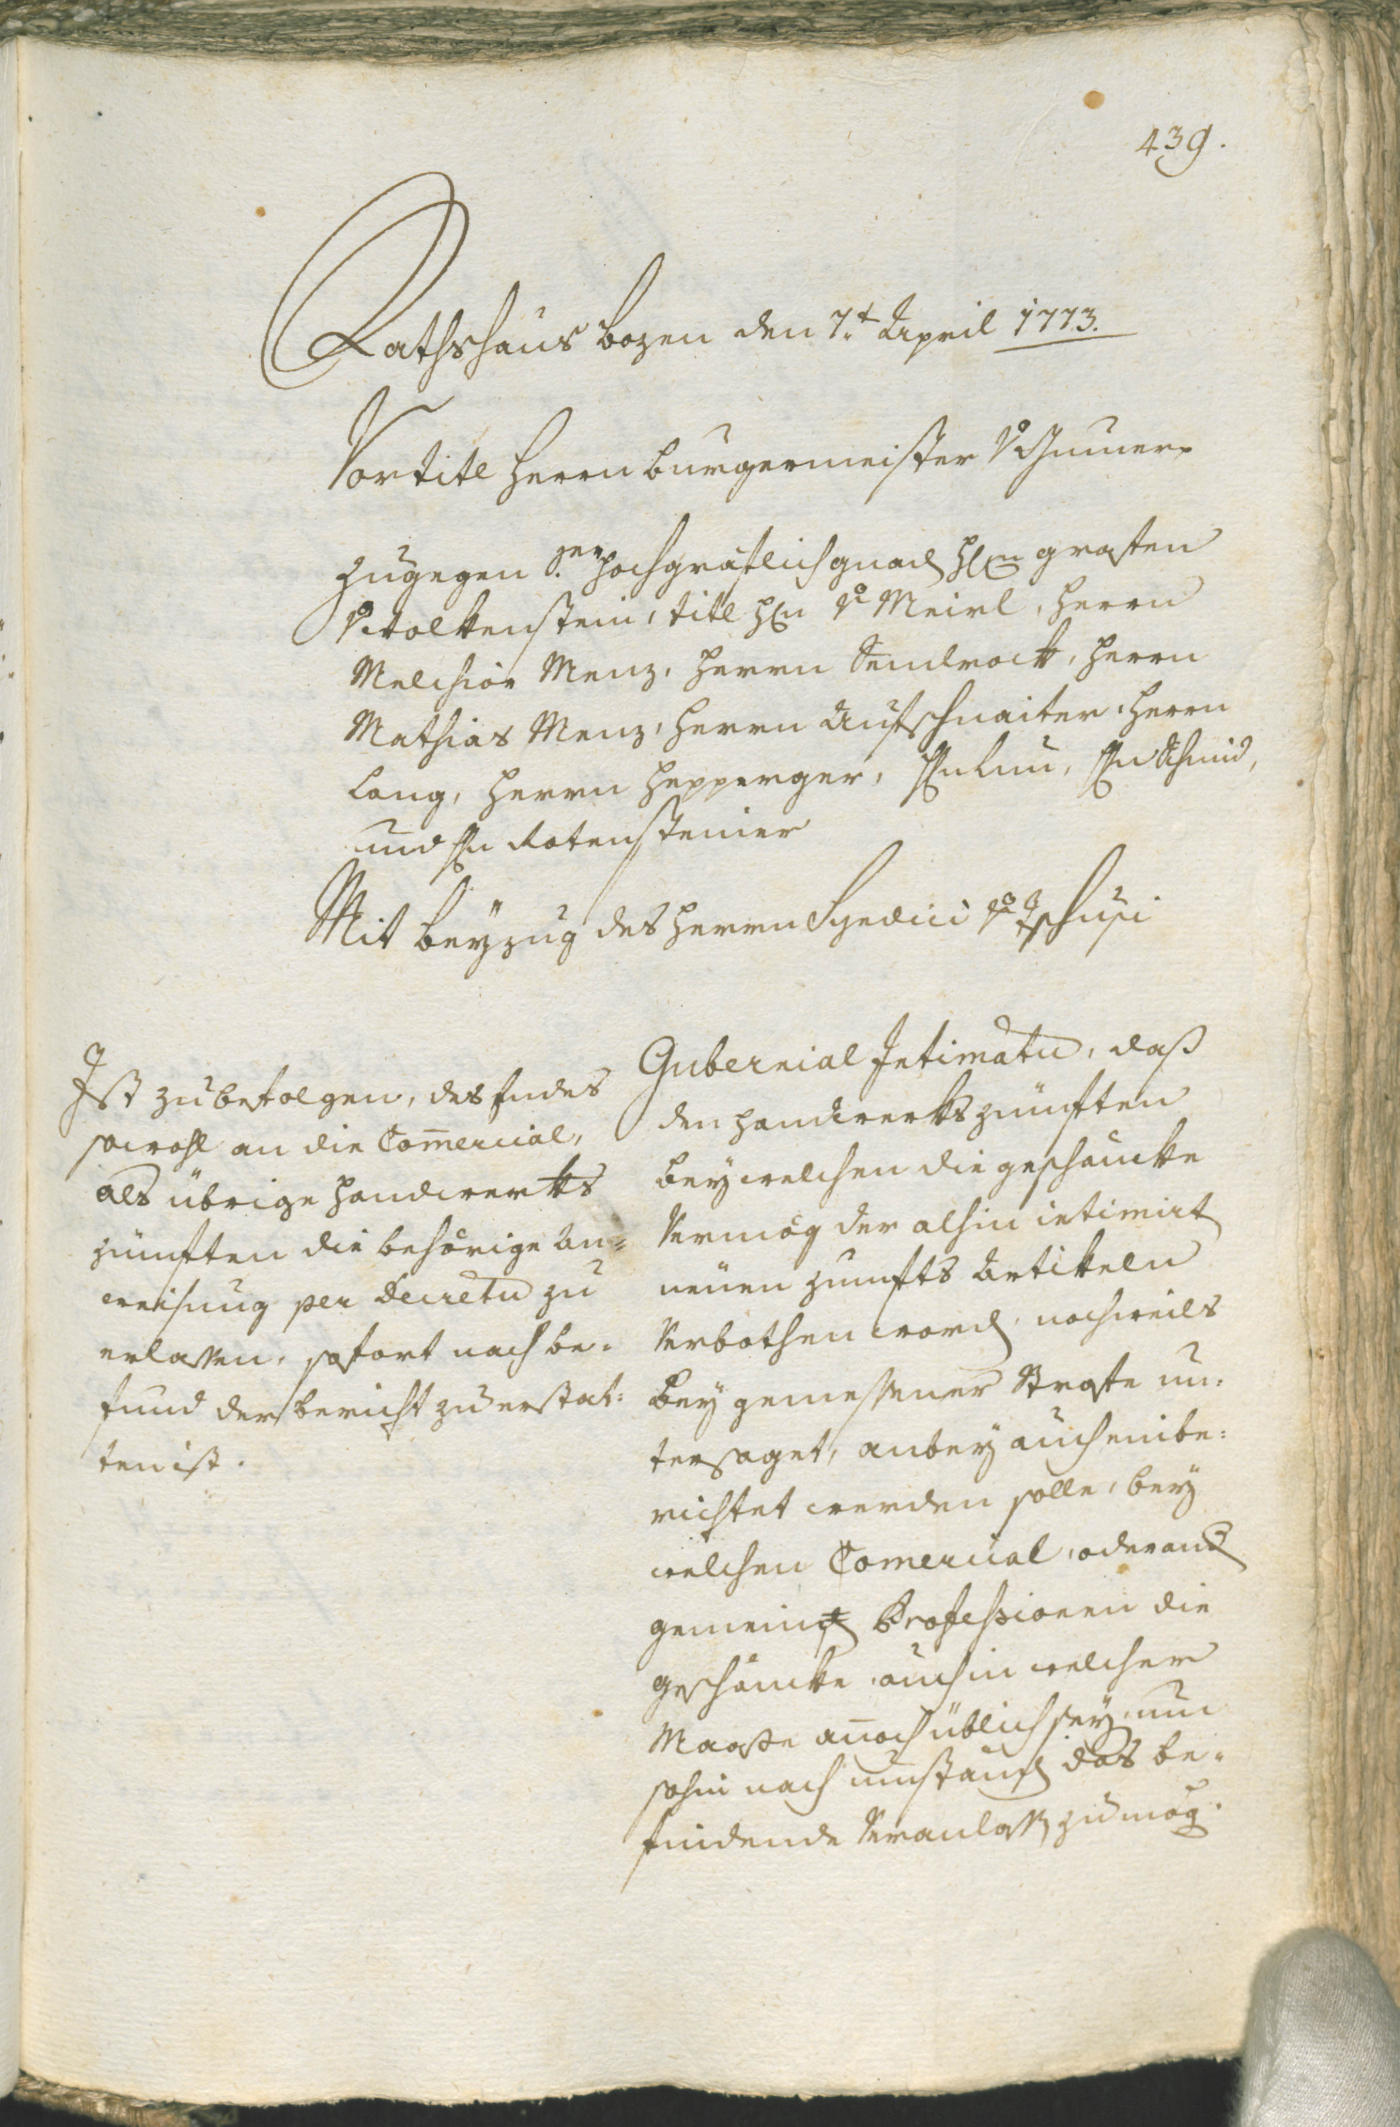 439.
Rathshaus Bozen den 7.t April 1773.
Vor titl Herrn Burgermeister v Gumer
zugegen S.er hochgräflich gnad H(er)rn grafen
v Wolkenstein, titl H(er)n v Meirl, Herrn
Melchior Menz, Herrn Sendrockh, Herrn
Mathias Menz, Herrn Aufschnaiter, Herrn
Lang, Herrn Hepperger, Hn Schmid,
und Hn Rotensteiner
Mit beyzug des Herrn Syndici v Tschusi
Ist zu befolgen, des Endes
sowohl an die Commercial,
als übrige Handwerks
zünften die behörige An=
weisung per Decretu zu
erlassen, sofort nach be=
fund der bericht zu erstat=
ten ist.
Gubernial Intimatu, daß
den Handwerkszünften
bey welchen die geschäncke
Vermög der alhin intimirt
neuen zunfts Artikeln
Verbothen word, nochweils
bey gemessener Strafe un=
tersaget, anbey auch einbe=
richtet werden solle, bey
welchen Comercial, oder and
gemeine Professionen die
geschäncke auch in welcher
Maaße annoch üblich sey, um
sohin nach umständ das be=
findende Veranlass zu mög.